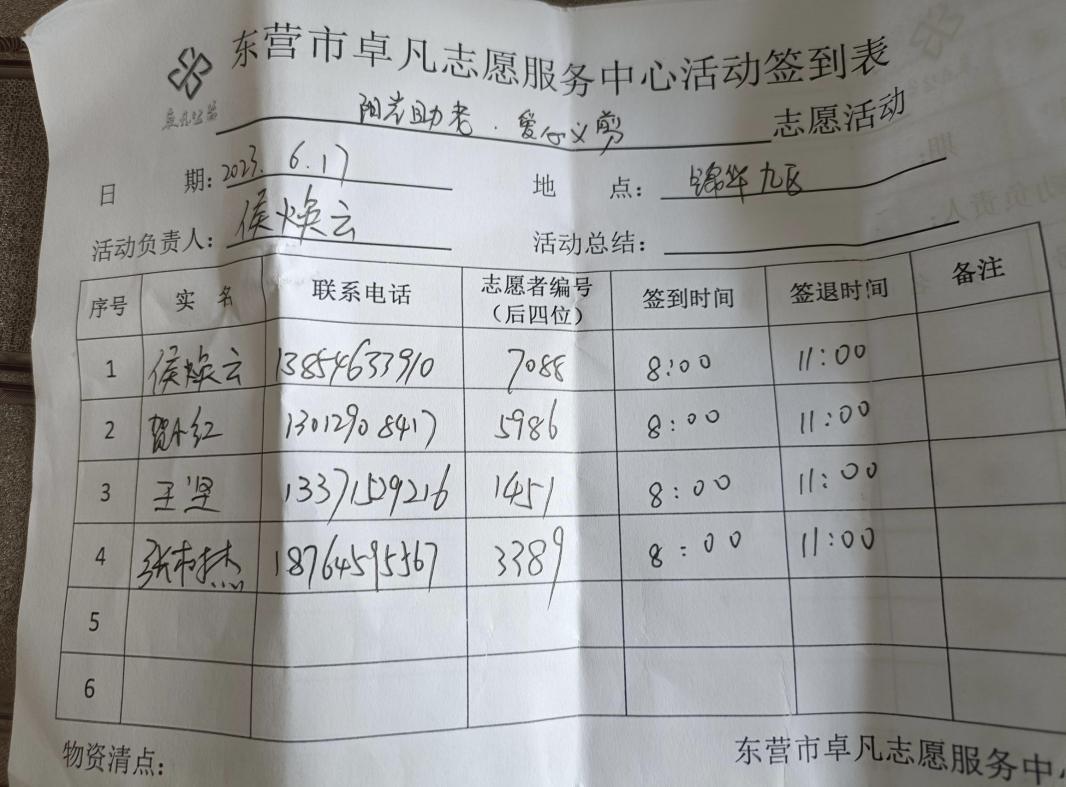 东营市卓凡志愿服务中心活动签到表
阳光助老.爱心义剪 志愿活动
日 期: 2023.6.17 地 点: 锦华九区
活动负责人: 侯焕云 活动总结:
序号 实 名 联系电话 志愿者编号(后四位) 签到时间 签退时间 备注
1 侯焕云 13854633910 7088 8:00 11:00
2 贺小红 13012908417 5986 8:00 11:00
3 王坚 13371529216 1451 8:00 11:00
4 18764595567 3389 8:00 11:00
5
6
物资清点: 东营市卓凡志愿服务中